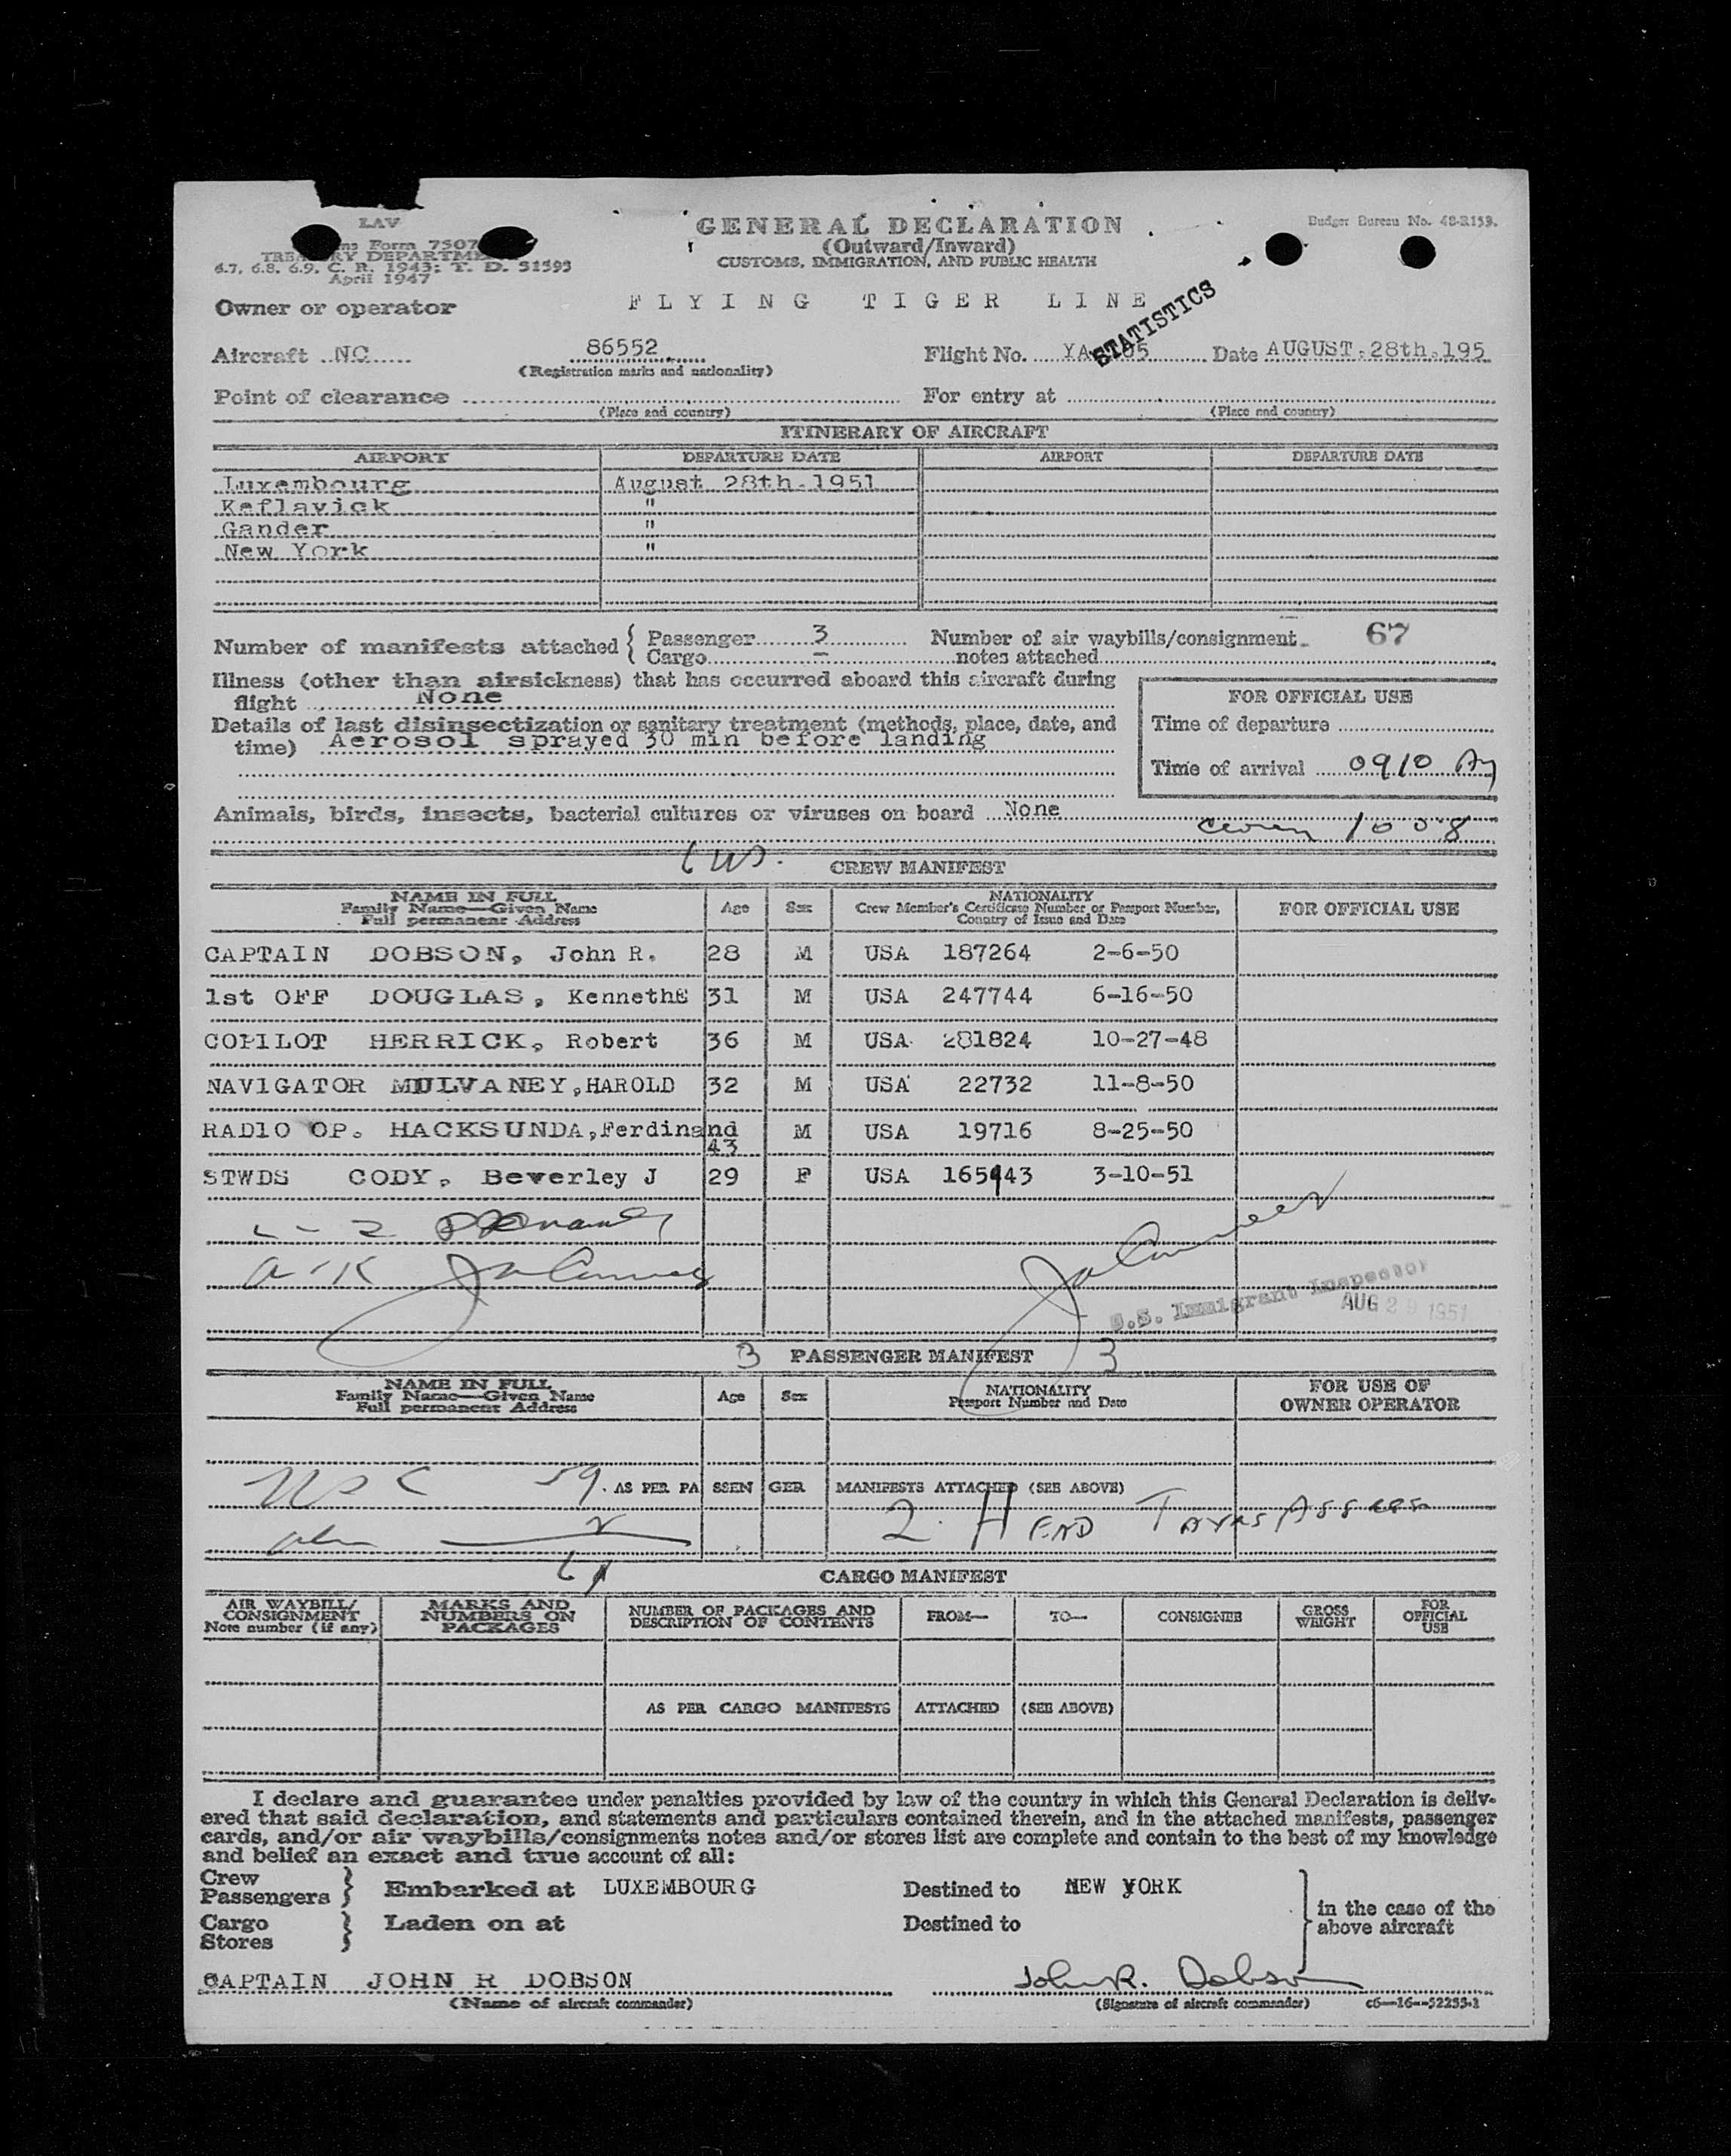 LAV
ns Form 7507
TREASURY DEPARTME
6.7, 6.8, 6.9, C. R. 1943; T. D. 51593
April 1947
GENERAL DECLARATION
(Outward/Inward)
CUSTOMS, IMMIGRATION, AND PUBLIC HEALTH
Budget Bureau No. 48-R153.
Owner or operator FLYING TIGER LINE
STATISTICS
Aircraft NC 86552 Flight No. YA 05 Date AUGUST.28th.195
(Registration marks and nationality)
Point of clearance For entry at
(Place and country) (Place and country)
ITINERARY OF AIRCRAFT
AIRPORT DEPARTURE DATE AIRPORT DEPARTURE DATE
Luxembourg August 28th.1951
Keflavick "
Gander "
New York "
Number of manifests attached { Passenger 3 Number of air waybills/consignment 67
Cargo — notes attached
Illness (other than airsickness) that has occurred aboard this aircraft during
flight None
FOR OFFICIAL USE
Details of last disinsectization or sanitary treatment (methods, place, date, and
time) Aerosol sprayed 30 min before landing
Time of departure
Time of arrival 0910
Animals, birds, insects, bacterial cultures or viruses on board None
1008
CREW MANIFEST
NAME IN FULL Age Sex NATIONALITY FOR OFFICIAL USE
Family Name—Given Name Crew Member's Certificate Number or Passport Number,
Full permanent Address Country of Issue and Date
CAPTAIN DOBSON, John R. 28 M USA 187264 2-6-50
1st OFF DOUGLAS, KennethE 31 M USA 247744 6-16-50
COPILOT HERRICK, Robert 36 M USA 281824 10-27-48
NAV1GATOR MULVANEY,HAROLD 32 M USA 22732 11-8-50
RAD1O OP. HACKSUNDA,Ferdinand 43 M USA 19716 8-25-50
STWDS CODY, Beverley J 29 F USA 165943 3-10-51
U.S. Immigrant Inspector
AUG 29 1951
3 PASSENGER MANIFEST 3
NAME IN FULL Age Sex NATIONALITY FOR USE OF
Family Name—Given Name Passport Number and Date OWNER OPERATOR
Full permanent Address
59. AS PER PASSENGER MANIFESTS ATTACHED (SEE ABOVE)
2 2 HEAD
CARGO MANIFEST
AIR WAYBILL/ CONSIGNMENT Note number (if any) MARKS AND NUMBERS ON PACKAGES NUMBER OF PACKAGES AND DESCRIPTION OF CONTENTS FROM— TO— CONSIGNEE GROSS WEIGHT FOR OFFICIAL USE
AS PER CARGO MANIFESTS ATTACHED (SEE ABOVE)
I declare and guarantee under penalties provided by law of the country in which this General Declaration is deliv-
ered that said declaration, and statements and particulars contained therein, and in the attached manifests, passenger
cards, and/or air waybills/consignments notes and/or stores list are complete and contain to the best of my knowledge
and belief an exact and true account of all:
Crew
Passengers } Embarked at LUXEMBOURG Destined to NEW YORK
in the case of the
above aircraft
Cargo
Stores } Laden on at Destined to
CAPTAIN JOHN R DOBSON John R. Dobson
(Name of aircraft commander) (Signature of aircraft commander) c6—16—52253-1